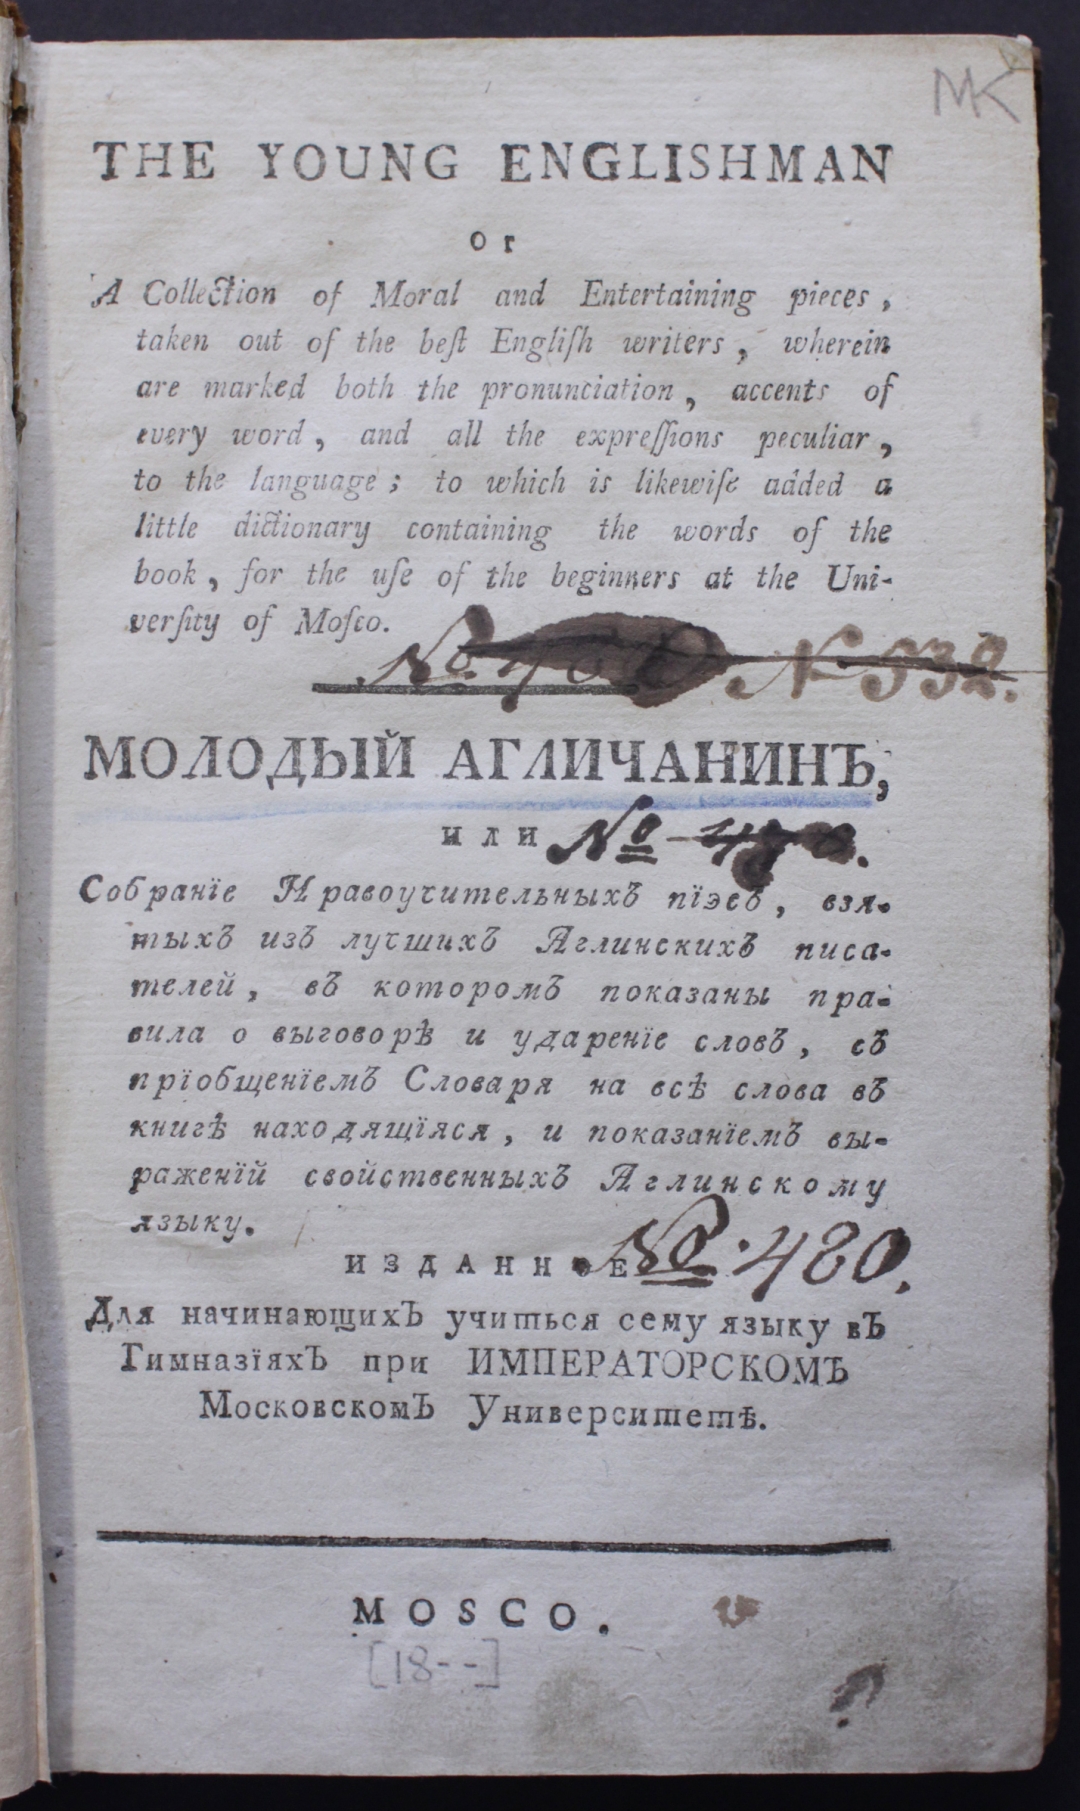 MK
THE YOUNG ENGLISHMAN
or
A Collection of Moral and Entertaining pieces,
taken out of the beſt Engliſh writers, wherein
are marked both the pronunciation, accents of
every word, and all the expreſſions peculiar,
to the language; to which is likewiſe added a
little dictionary containing the words of the
book, for the uſe of the beginners at the Uni-
verſity of Moſco.
No. N. 532.
МОЛОДЫЙ АГЛИЧАНИНЪ,
или No
Собранїе Нравоучительныхъ пїэсъ, взя-
тыхъ изъ лучшихъ Аглинскихъ писа-
телей, въ которомъ показаны пра-
вила о выговорѣ и ударенїе словъ, съ
прїобщенїемъ Словаря на всѣ слова въ
книгѣ находящїяся, и показанїемъ вы-
раженїй свойственныхъ Аглинскому
языку.
ИЗДАННОЕ No. 480.
Для начинающихъ учиться сему языку въ
Гимназїяхъ при ИМПЕРАТОРСКОМЪ
Московскомъ Университетѣ.
MOSCO.
[18--]